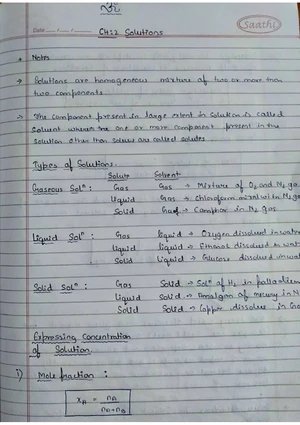 Date
Saathi
CH:2 Solutions
Notes
→ Solutions are homogeneous mixture of two or more than
two components
→ The component present in large extent in solution is called
solvent whereas the one or more component present in the
solution other than solvent are called solutes
Types of Solutions.
Solute Solvent
Gaseous Solⁿ : Gas Gas → Mixture of O₂ and N₂ ga
Liquid Gas → Chloroform mixed with N₂ g
Solid Gas → Camphor in N₂ gas
Liquid Solⁿ : Gas liquid → Oxygen dissolved in wate
Liquid liquid → Ethanol dissolved in wat
Solid liquid → Glucose dissolved in wa
Solid Solⁿ : Gas Solid → Solⁿ of H₂ in palladium
Liquid Solid → Amalgam of mercury in N
Solid Solid → Copper dissolve in Go
Expressing Concentration
of Solution.
i) Mole fraction :
xA = nA / nA+nB